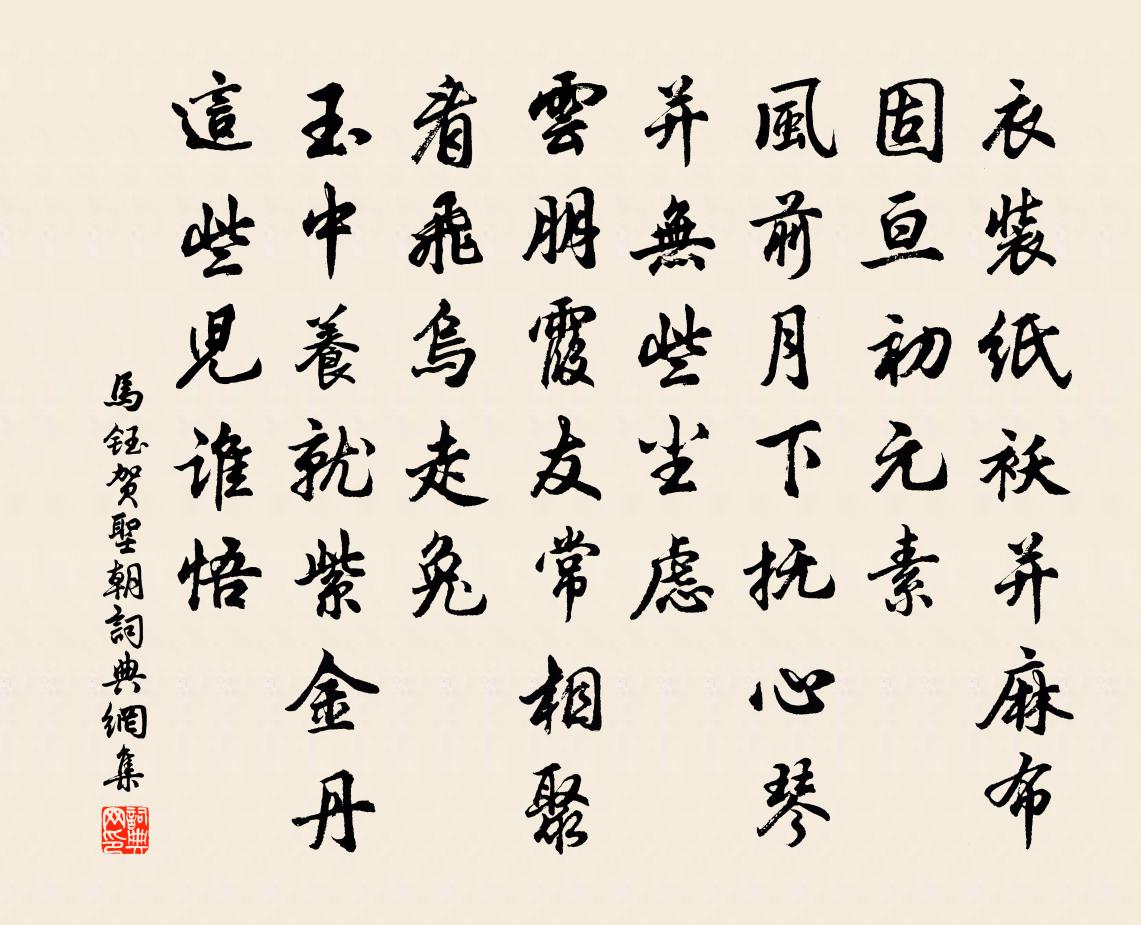 衣裝紙襖并麻布
固亘初元素
風前月下抚心琴
并無些尘慮
雲朋霞友常相聚
看飛烏走兔
玉中養就紫金丹
這些児谁悟
馬鈺贺聖朝詞典網集
詞典網印